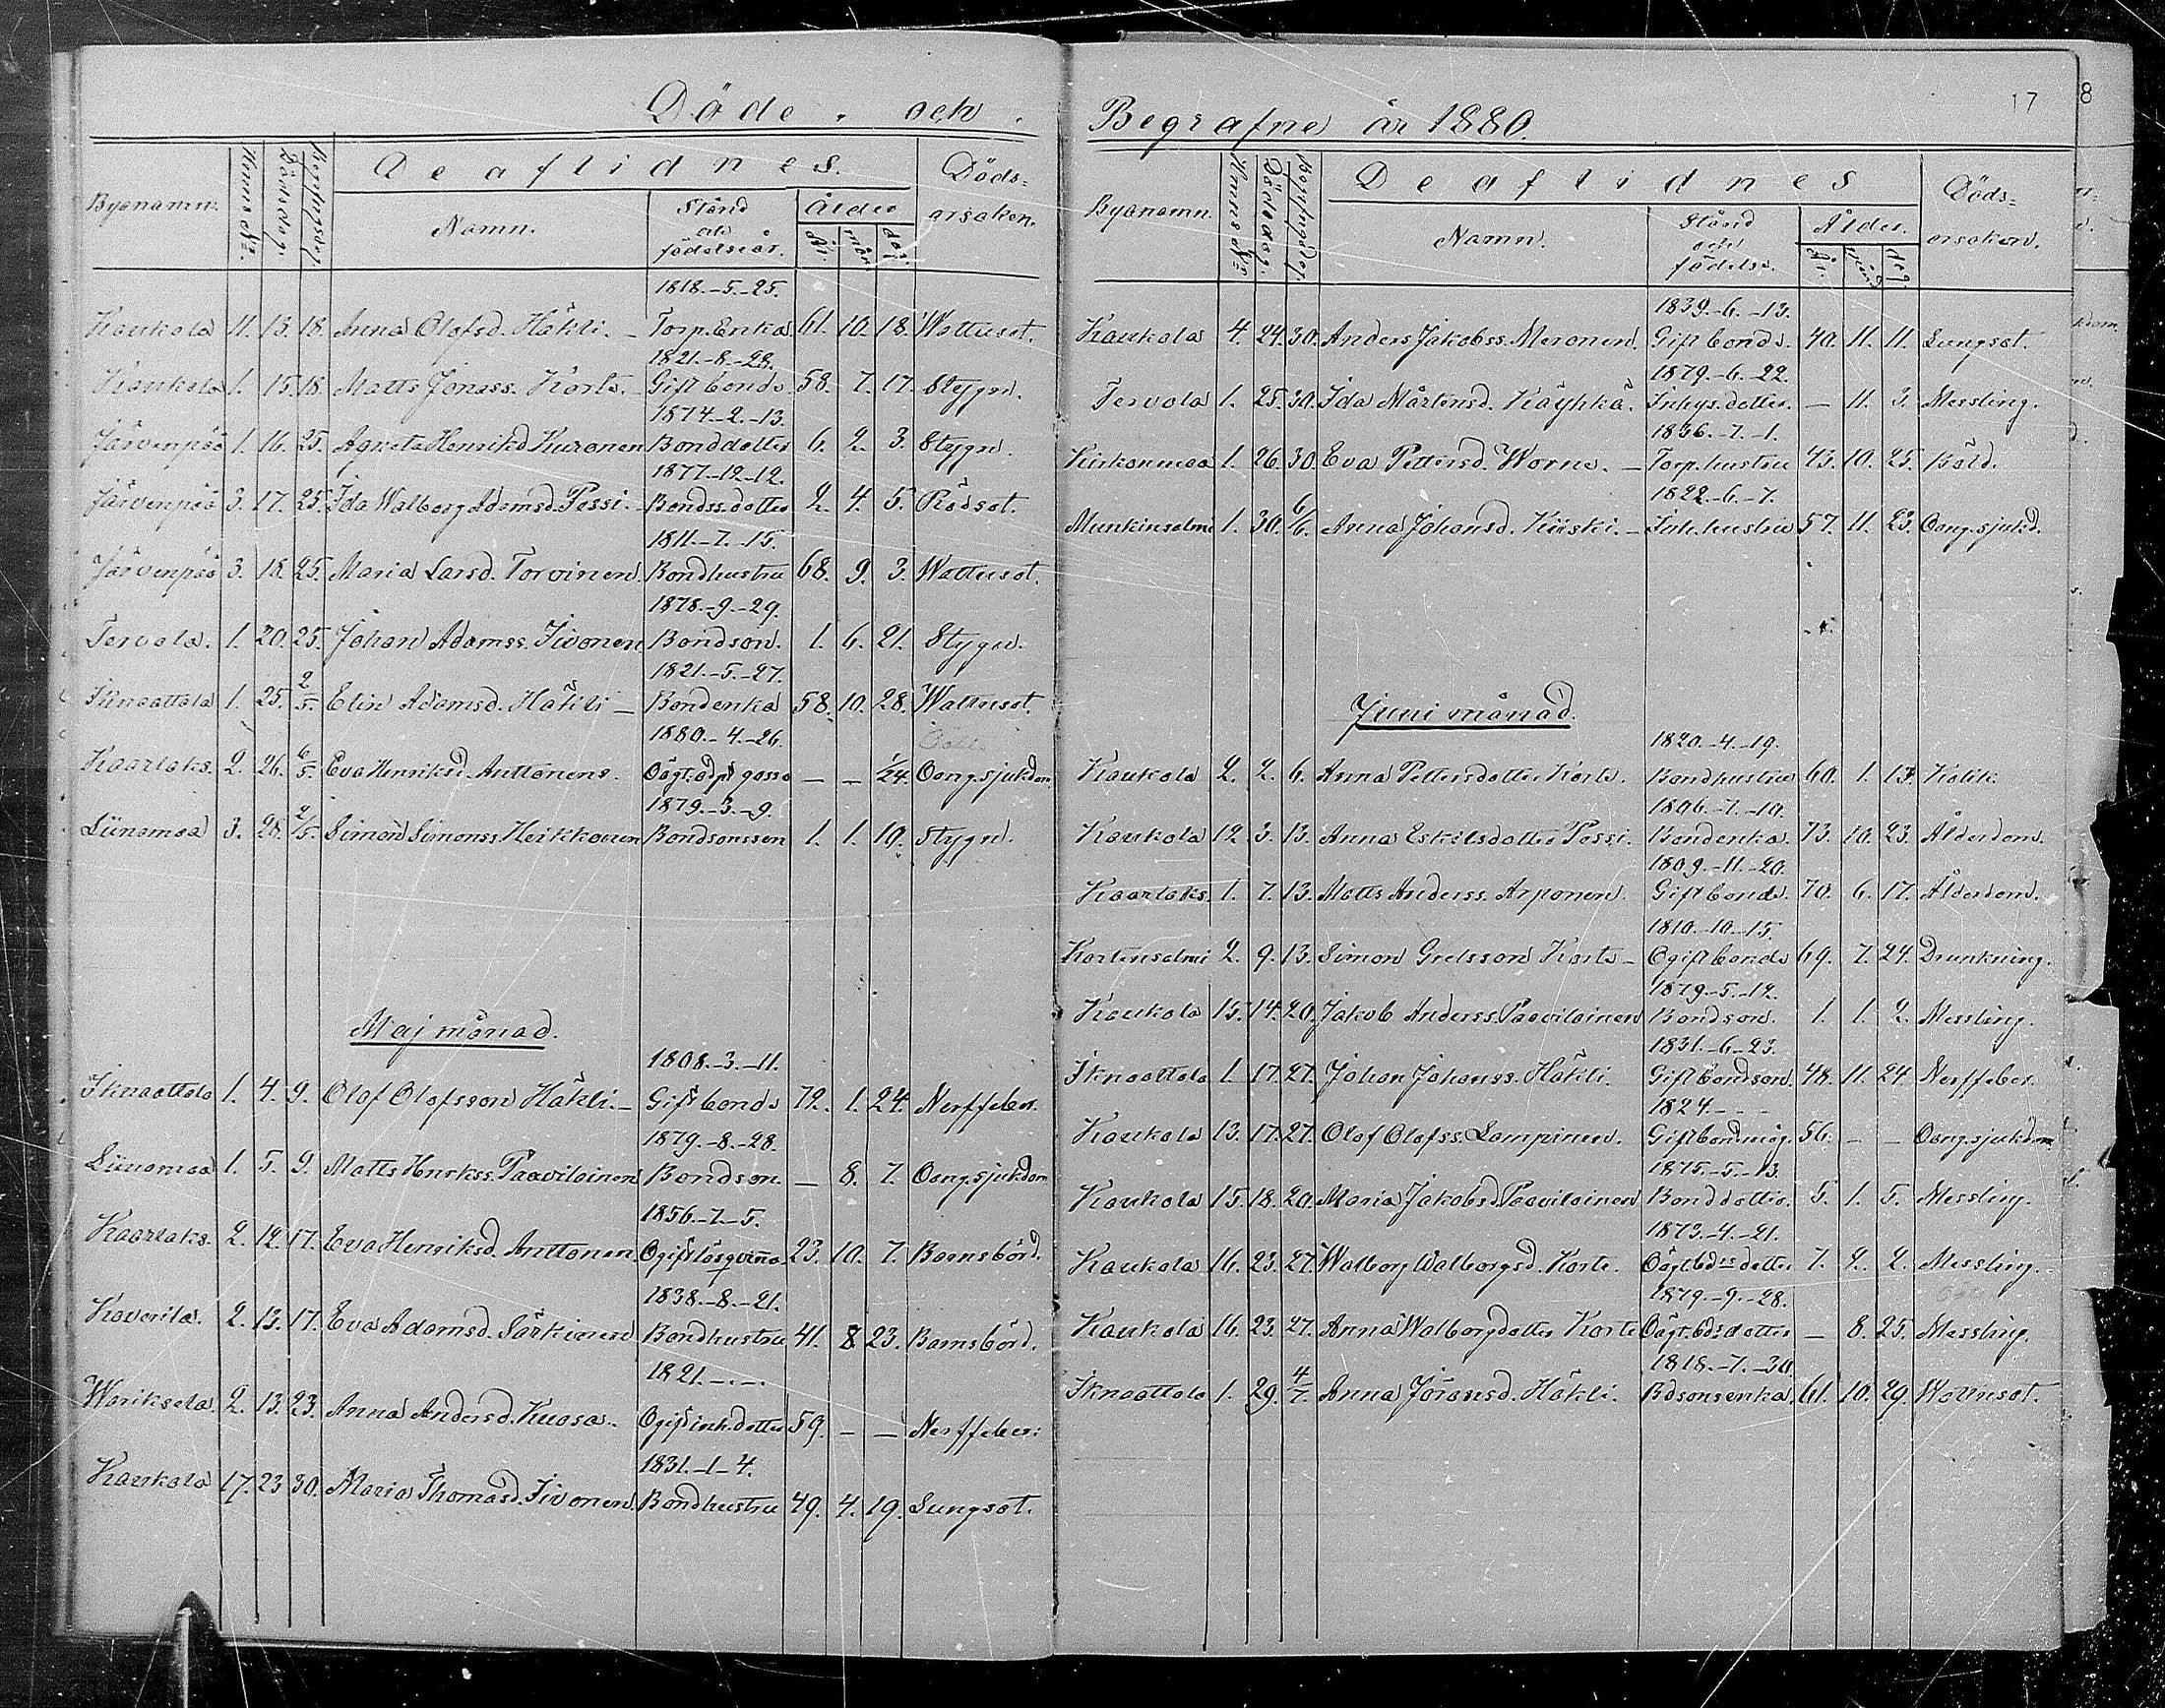 Döde och
Byanamn. Hemms №. Dödsdag. Begrafngsdag. De aflidnes. Döds-
Namn. Stånd och födelseår. Ålder orsaken.
År. mån. dag.
1818.-5.-25.
Kaukola 11. 13. 18. Anna Olofsd. Häkli. - Torp. Enka. 61. 10. 18. Wattusot.
1821.-8.-28.
Kaukola 1. 15. 18. Matts Jonass. Korte. - Gift bonde 58. 7. 17. Stygn.
1874.-2.-13.
Järvenpää 1. 16. 25. Agneta Henriksd Kuronen Bonddotter 6. 2. 3. Stygn.
1877.-12.-12.
Järvenpää 3. 17. 25. Ida Walborg Adamsd. Pessi. Bondss.dotter 2. 4. 5. Rödsot.
1811.-7.-15.
Järvenpää 3. 18. 25. Maria Larsd. Torvinen. Bondhustru 68. 9. 3. Wattusot.
1878.-9.-29.
Tervola. 1. 20. 25. Johan Adamss. Iivonen Bondson. 1. 6. 21. Stygn.
1821.-5.-27.
Iknaattala 1. 25. 2/5. Elin Adamsd. Häkli - Bondenka 58. 10. 28. Wattusot.
1880.-4.-26.
Kaarlaks. 2. 26. 6/5. Eva Henriksd. Anttonens. Oägt. gosse — — 1/24. Oäng.sjukdom.
1879.-3.-9.
Liinamaa 3. 28. 2/5. Simon Simonss. Heikkonen Bondsonsson 1. 1. 19. Stygn.
Maj månad.
1808.-3.-11.
Iknaattala 1. 4. 9. Olof Olofsson Häkli. - Gift bonde 72. 1. 24. Nerffeber.
1879.-8.-28.
Liinamaa 1. 5. 9. Matts Henrkss. Paavilainen Bondson. — 8. 7. Oäng.sjukdom
1856.-7.-5.
Kaarlaks. 2. 12. 17. Eva Henriksd. Anttonen Ogift lösqvinna 23. 10. 7. Barnsbörd.
1838.-8.-21.
Koverila. 2. 13. 17. Eva Adamsd. Särkinen Bondhustru 41. 8. 23. Barnsbörd.
1821.-.-.
Wariksela. 2. 13. 23. Anna Andersd. Kuosa. Ogift inh.dotter 59. — — Nerffeber.
1831.-1-4.
Kaukola 17. 23. 30. Maria Thomasd. Iivonen. Bondhustru 49. 4. 19. Lungsot.
17
8
Begrafne år 1880.
Byanamn. Hemms №. Dödsdag. Begrafngsdag. De aflidnes Döds-
Namn. Stånd och födelse. Ålder. orsaken.
År. mån. dag
1839.-6.-13.
Kaukola 4. 24. 30. Anders Jakobss. Meronen. Gift bonde. 40. 11. 11. Lungsot.
1879.-6.-22.
Tervola 1. 25. 30. Ida Mårtensd. Käyhkä. Inhys.dotter. — 11. 3. Messling.
1836.-7.-1.
Kirkonmaa 1. 26. 30. Eva Pettersd. Worne. - Torp.hustru 43. 10. 25. Böld.
1822.-6.-7.
Munkinsalmi 1. 30. 6/6. Anna Johansd. Kiiski. - Inh.hustru 57. 11. 23. Oäng.sjukd.
Juni månad.
1820.-4.-19.
Kaukola 2. 2. 6. Anna Pettersdotter Korte. Bondhustru 60. 1. 13. Kolik.
1806.-7.-10.
Kaukola 12. 3. 13. Anna Eskilsdotter Pessi. Bondenka. 73. 10. 23. Ålderdom.
1809.-11.-20.
Kaarlaks. 1. 7. 13. Matts Anderss. Arponen. Gift bonde. 70. 6. 17. Ålderdom.
1810.-10.-15.
Kortensalmi 2. 9. 13. Simon Grelsson Korte - Ogift bonde 69. 7. 24. Drunkning.
1879.-5.-12.
Kaukola 15. 14. 20. Jakob Anderss. Paavilainen Bondson. 1. 1. 2. Messling.
1831.-6.-23.
Iknaattala 1. 17. 27. Johan Johanss. Häkli. Gift bondson. 48. 11. 24. Nerffeber.
1824.- - -
Kaukola 13. 17. 27. Olof Olofss. Lampinen. Gift bondmåg. 56. — — Oäng.sjukdom.
1875.-5.-13.
Kaukola 15. 18. 20. Maria Jakobsd. Paavilainen Bonddotter. 5. 1. 5. Messling.
1873.-4.-21.
Kaukola 16. 23. 27. Walborg Walborgsd. Korte. Oägt bds dotter 7. 2. 2. Messling.
1879.-9.-28.
Kaukola 16. 23. 27. Anna Walborgdotter Korte Oägt. bds dotter — 8. 25. Messling.
1818.-7.-30.
Iknaattala 1. 29. 4/7. Anna Jöransd. Häkli. Bdsonsenka. 61. 10. 29. Wattusot.